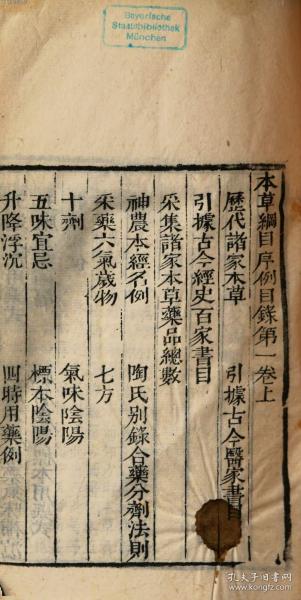 Bayerische
Staatsbibliothek
München
本草綱目序例目錄第一卷上
歷代諸家本草 引據古今醫家書目
引據古今經史百家書目
采集諸家本草藥品總數
神農本經名例 陶氏別錄合藥分劑法則
采藥六氣歲物 七方
十劑 氣味陰陽
五味宜忌 標本陰陽
升降浮沉 四時用藥例
孔夫子旧书网